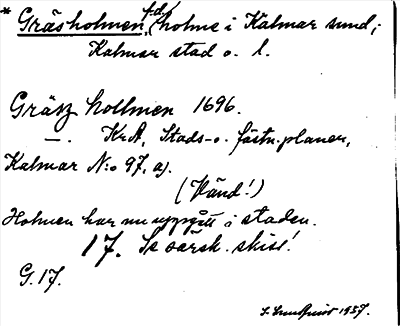 * Gräsholmen, f.d. holme i Kalmar sund,
Kalmar stad o. l.
Gräsz hollmen 1696.
—. KrA, Stads- o. fästn.planer,
Kalmar N:o 97, a).
(Vänd!)
Holmen har nu uppgått i staden.
17. Se särsk. skiss!
G. 17.
S. Lundquist 1957.